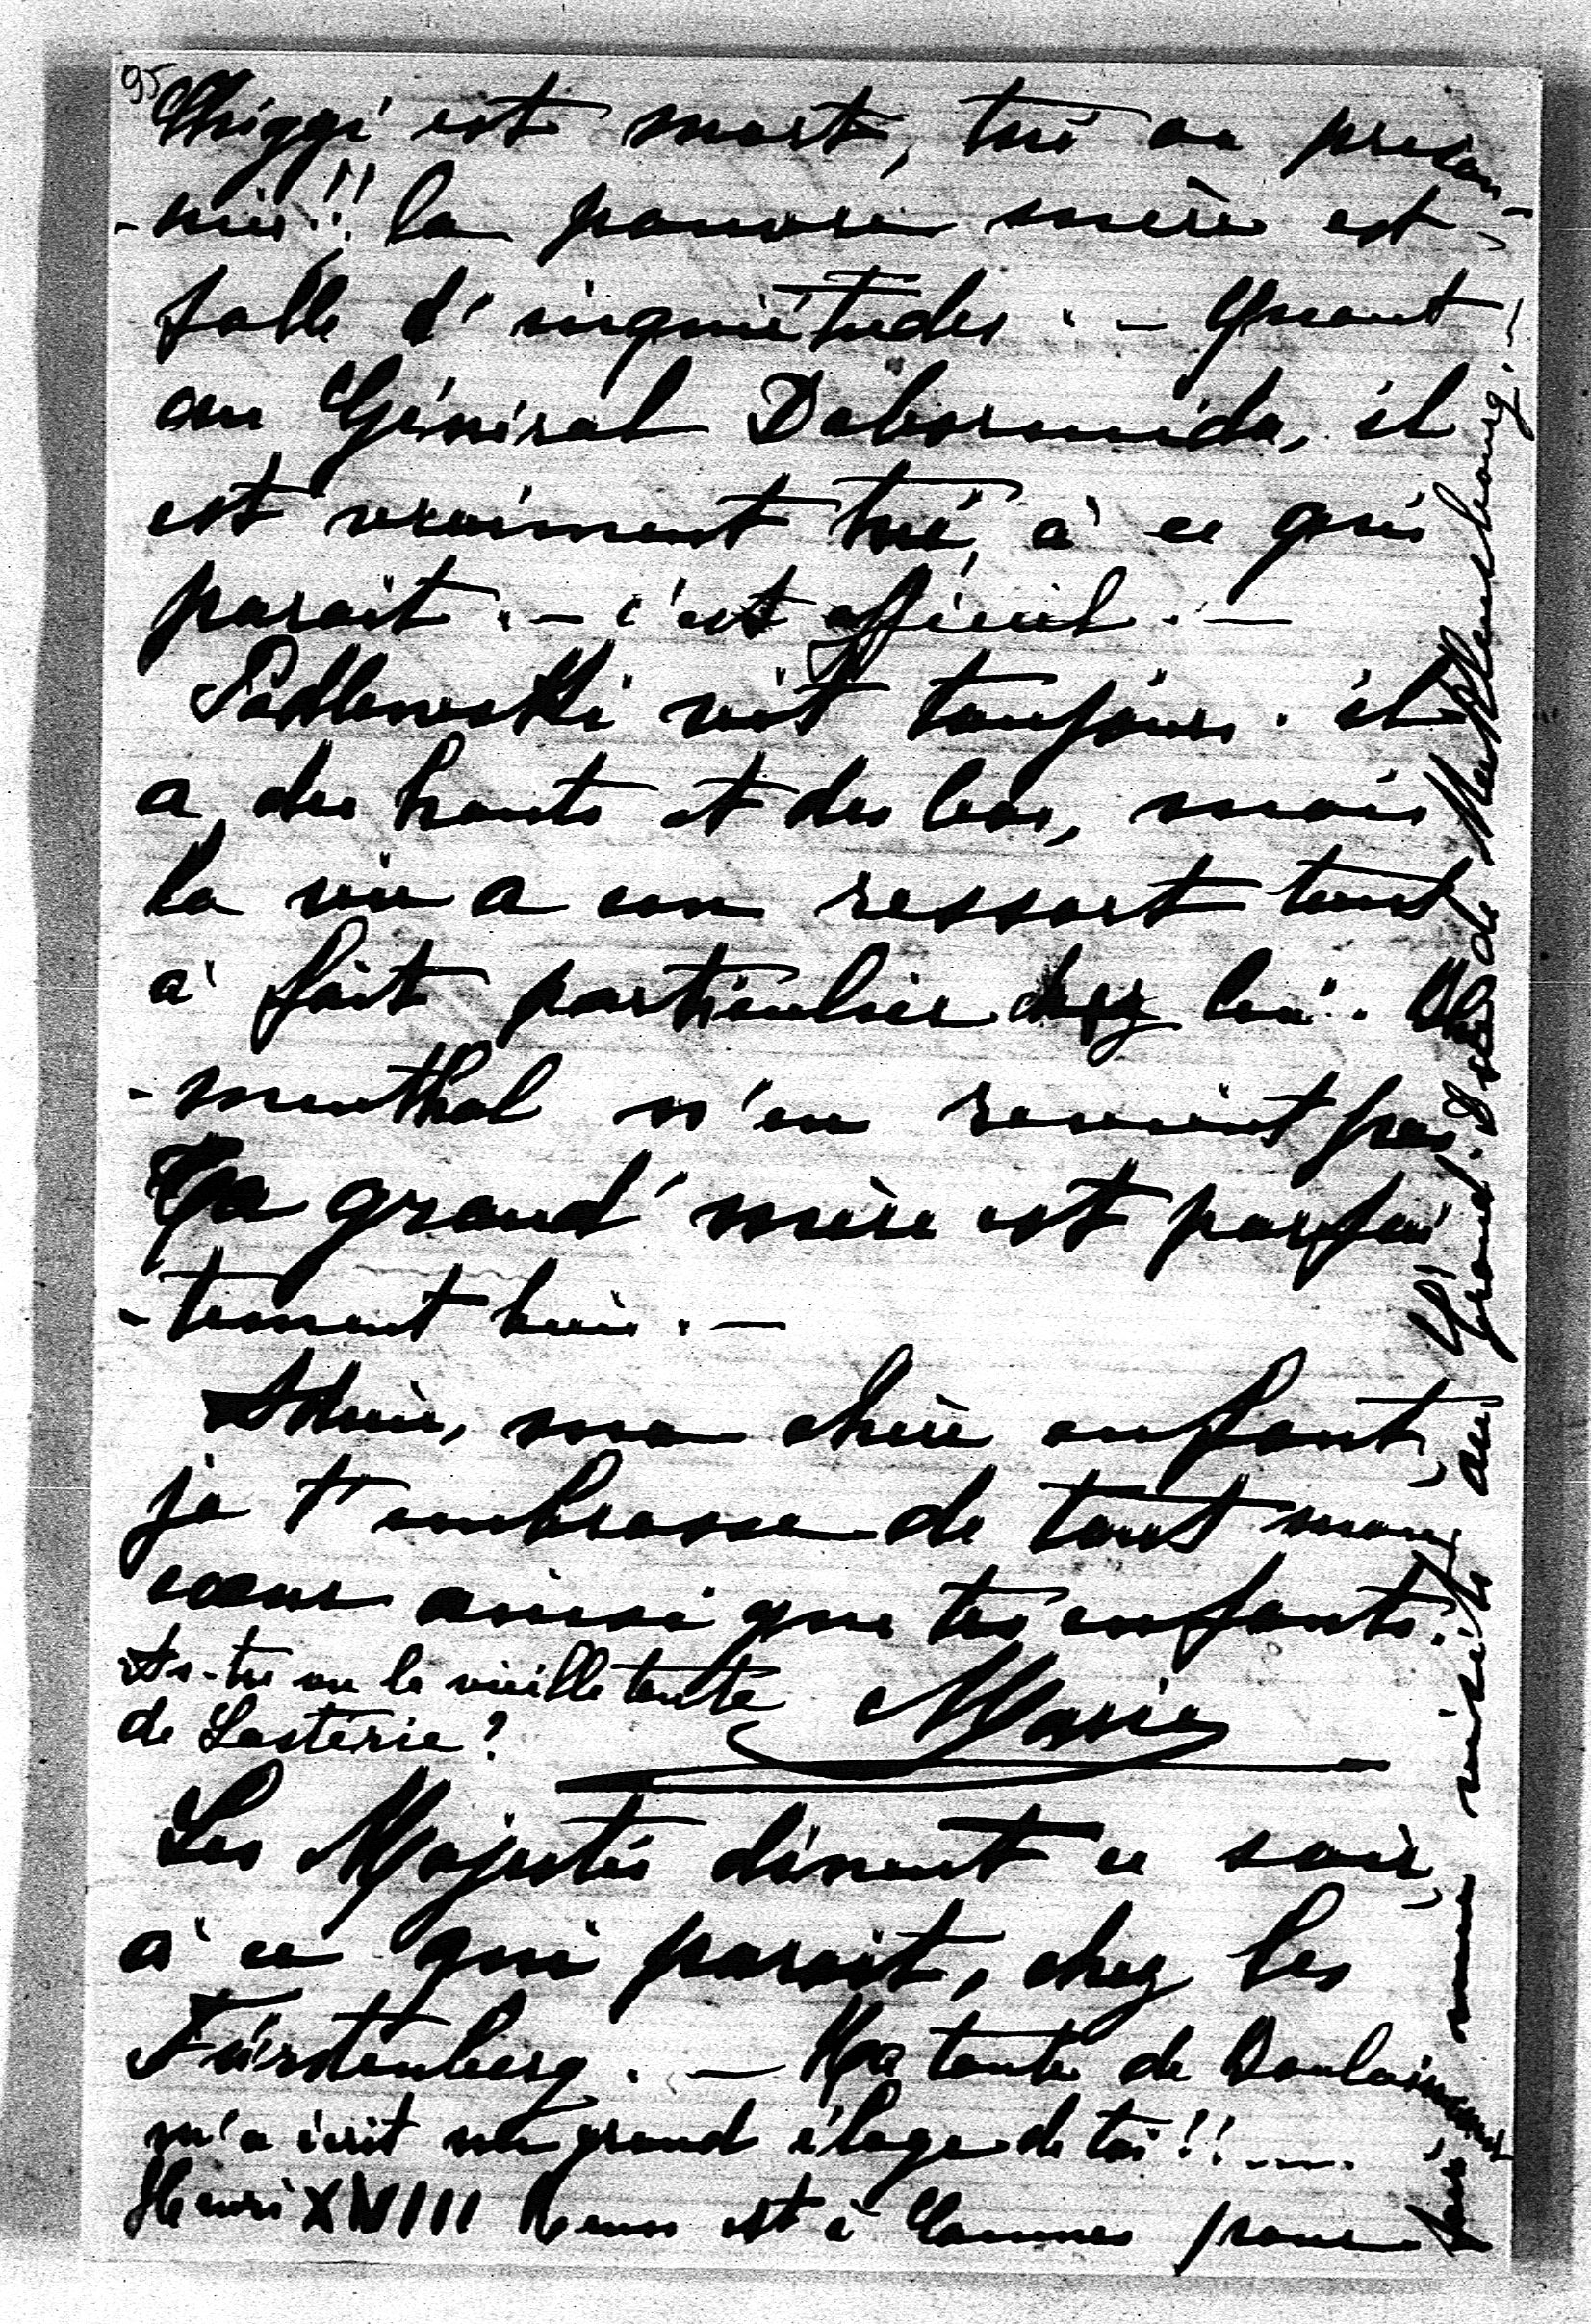 95
Chiggi est mort, tué ou prison-
-nier!! la pauvre mère est
folle d'inquiétudes. - Quant
au Général Dabormida, il
est vraiment tué, à ce qui
parait. - c'est officiel. -
Podbewski vit toujours. il
a des hauts et des bas, mais
la vie a un ressort tout
à fait particulier chez lui. Blu
-menthal n'en revient pas
Ta grand'mère est parfai
-tement bien. -
Adieu, ma chère enfant,
je t'embrasse de tout mon
coeur ainsi que tes enfants.
As-tu vu la vieille tante
de Lasterie?
Marie
Les Majestés dinent ce soir,
à ce qui parait, chez les
Fürstenberg. - Ma tante de Boulaincourt
m'a écrit un grand éloge de toi!! ....
Henri XVIII Reuss est à Cannes pour
faire une visite au Grand. Duc de Mecklembourg. -